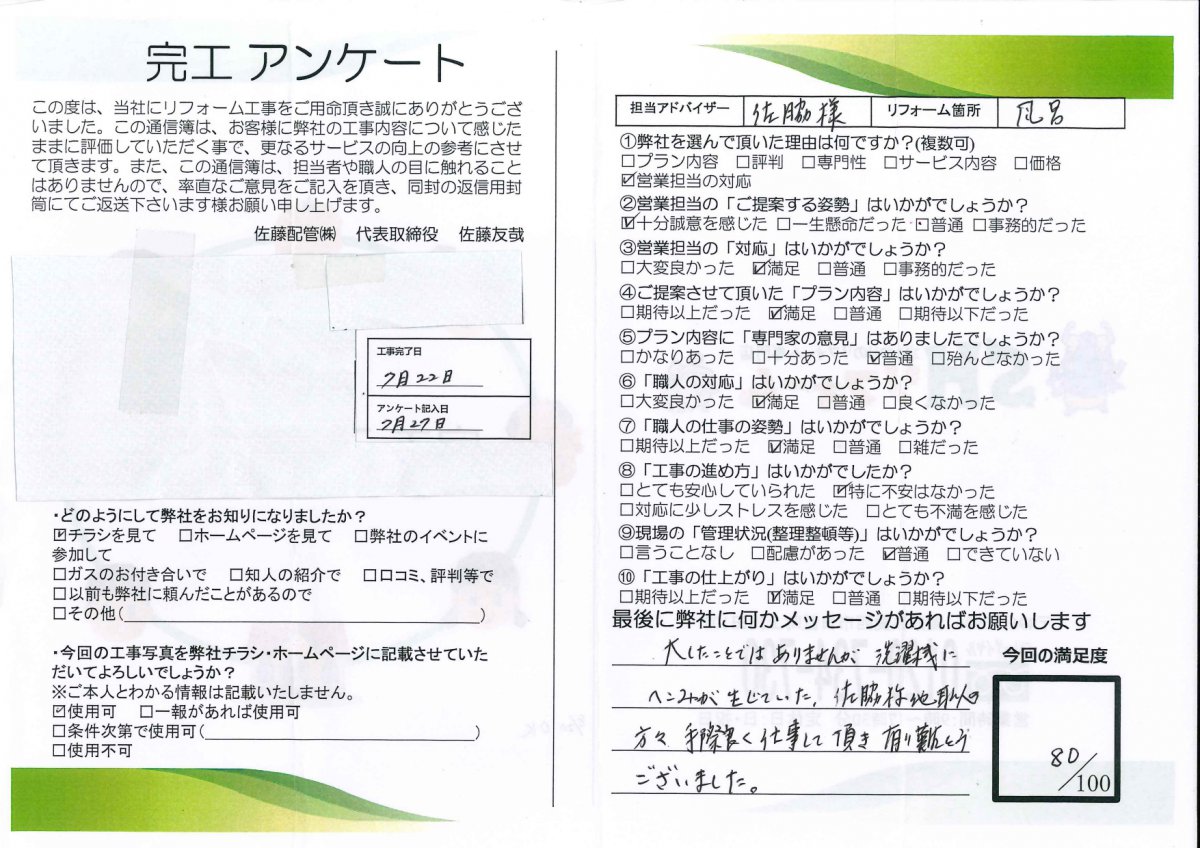 完工 アンケート
この度は、当社にリフォーム工事をご用命頂き誠にありがとうござ
いました。この通信簿は、お客様に弊社の工事内容について感じた
ままに評価していただく事で、更なるサービスの向上の参考にさせ
て頂きます。また、この通信簿は、担当者や職人の目に触れること
はありませんので、率直なご意見をご記入を頂き、同封の返信用封
筒にてご返送下さいます様お願い申し上げます。
佐藤配管㈱ 代表取締役 佐藤友哉
工事完了日
7月22日
アンケート記入日
7月27日
・どのようにして弊社をお知りになりましたか?
☑チラシを見て □ホームページを見て □弊社のイベントに
参加して
□ガスのお付き合いで □知人の紹介で □口コミ、評判等で
□以前も弊社に頼んだことがあるので
□その他(                )
・今回の工事写真を弊社チラシ・ホームページに記載させていた
だいてよろしいでしょうか?
※ご本人とわかる情報は記載いたしません。
☑使用可 □一報があれば使用可
□条件次第で使用可(                )
□使用不可
担当アドバイザー 佐脇様 リフォーム箇所 風呂
①弊社を選んで頂いた理由は何ですか?(複数可)
□プラン内容 □評判 □専門性 □サービス内容 □価格
☑営業担当の対応
②営業担当の「ご提案する姿勢」はいかがでしょうか?
☑十分誠意を感じた □一生懸命だった □普通 □事務的だった
③営業担当の「対応」はいかがでしょうか?
□大変良かった ☑満足 □普通 □事務的だった
④ご提案させて頂いた「プラン内容」はいかがでしょうか?
□期待以上だった ☑満足 □普通 □期待以下だった
⑤プラン内容に「専門家の意見」はありましたでしょうか?
□かなりあった □十分あった ☑普通 □殆んどなかった
⑥「職人の対応」はいかがでしょうか?
□大変良かった ☑満足 □普通 □良くなかった
⑦「職人の仕事の姿勢」はいかがでしょうか?
□期待以上だった ☑満足 □普通 □雑だった
⑧「工事の進め方」はいかがでしたか?
□とても安心していられた ☑特に不安はなかった
□対応に少しストレスを感じた □とても不満を感じた
⑨現場の「管理状況(整理整頓等)」はいかがでしょうか?
□言うことなし □配慮があった ☑普通 □できていない
⑩「工事の仕上がり」はいかがでしょうか?
□期待以上だった ☑満足 □普通 □期待以下だった
最後に弊社に何かメッセージがあればお願いします
大したことではありませんが 洗濯機に
へこみが生じていた。佐脇様他職人の
方々 手際良く仕事して頂き 有り難とう
ございました。
今回の満足度
80/100